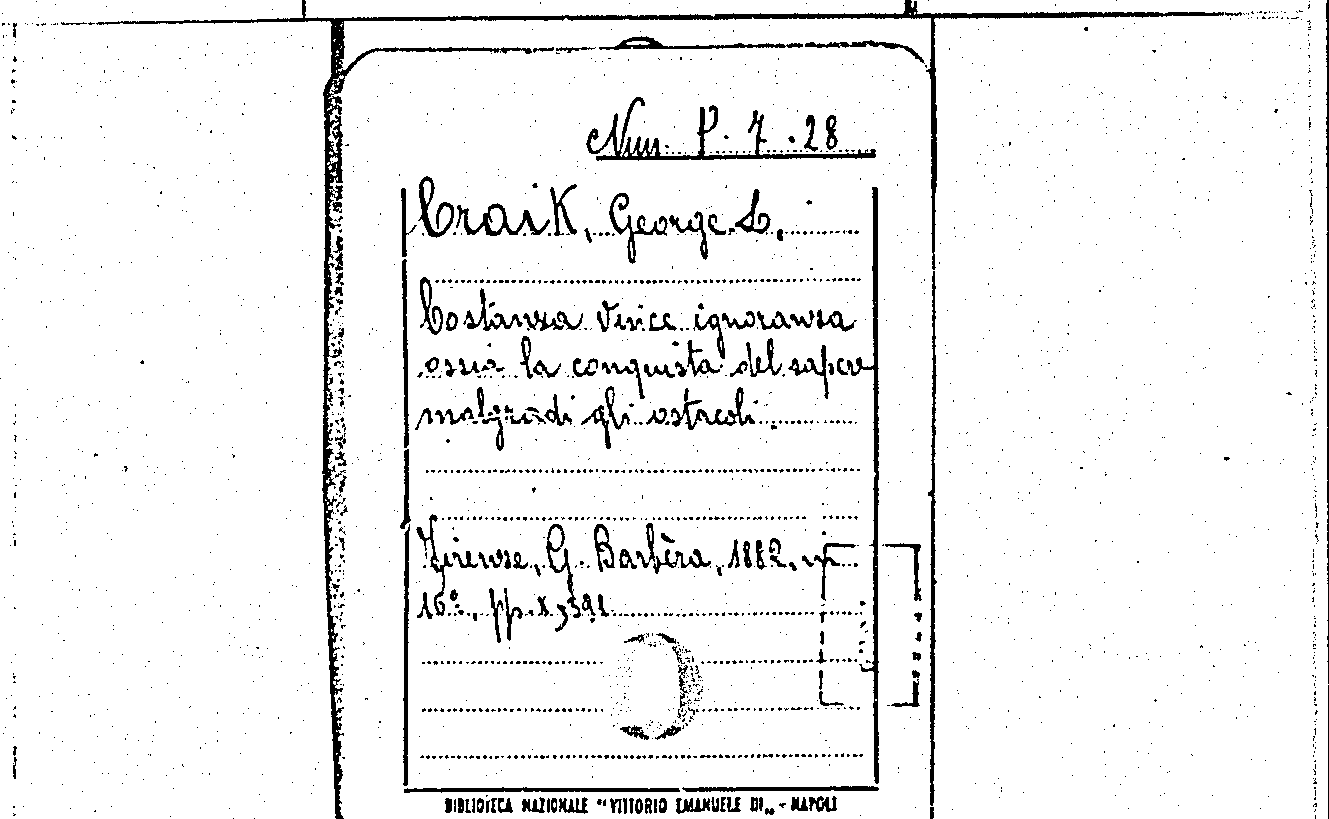 Nun. P. 7. 28
Craik, George L.
Costanza vince ignoranza
ossia la conquista del sapere
malgradi gli ostacoli.
Firenze, G. Barbèra, 1882, in
16°., pp. X, 391
BIBLIOTECA NAZIONALE "VITTORIO EMANUELE III„ - NAPOLI